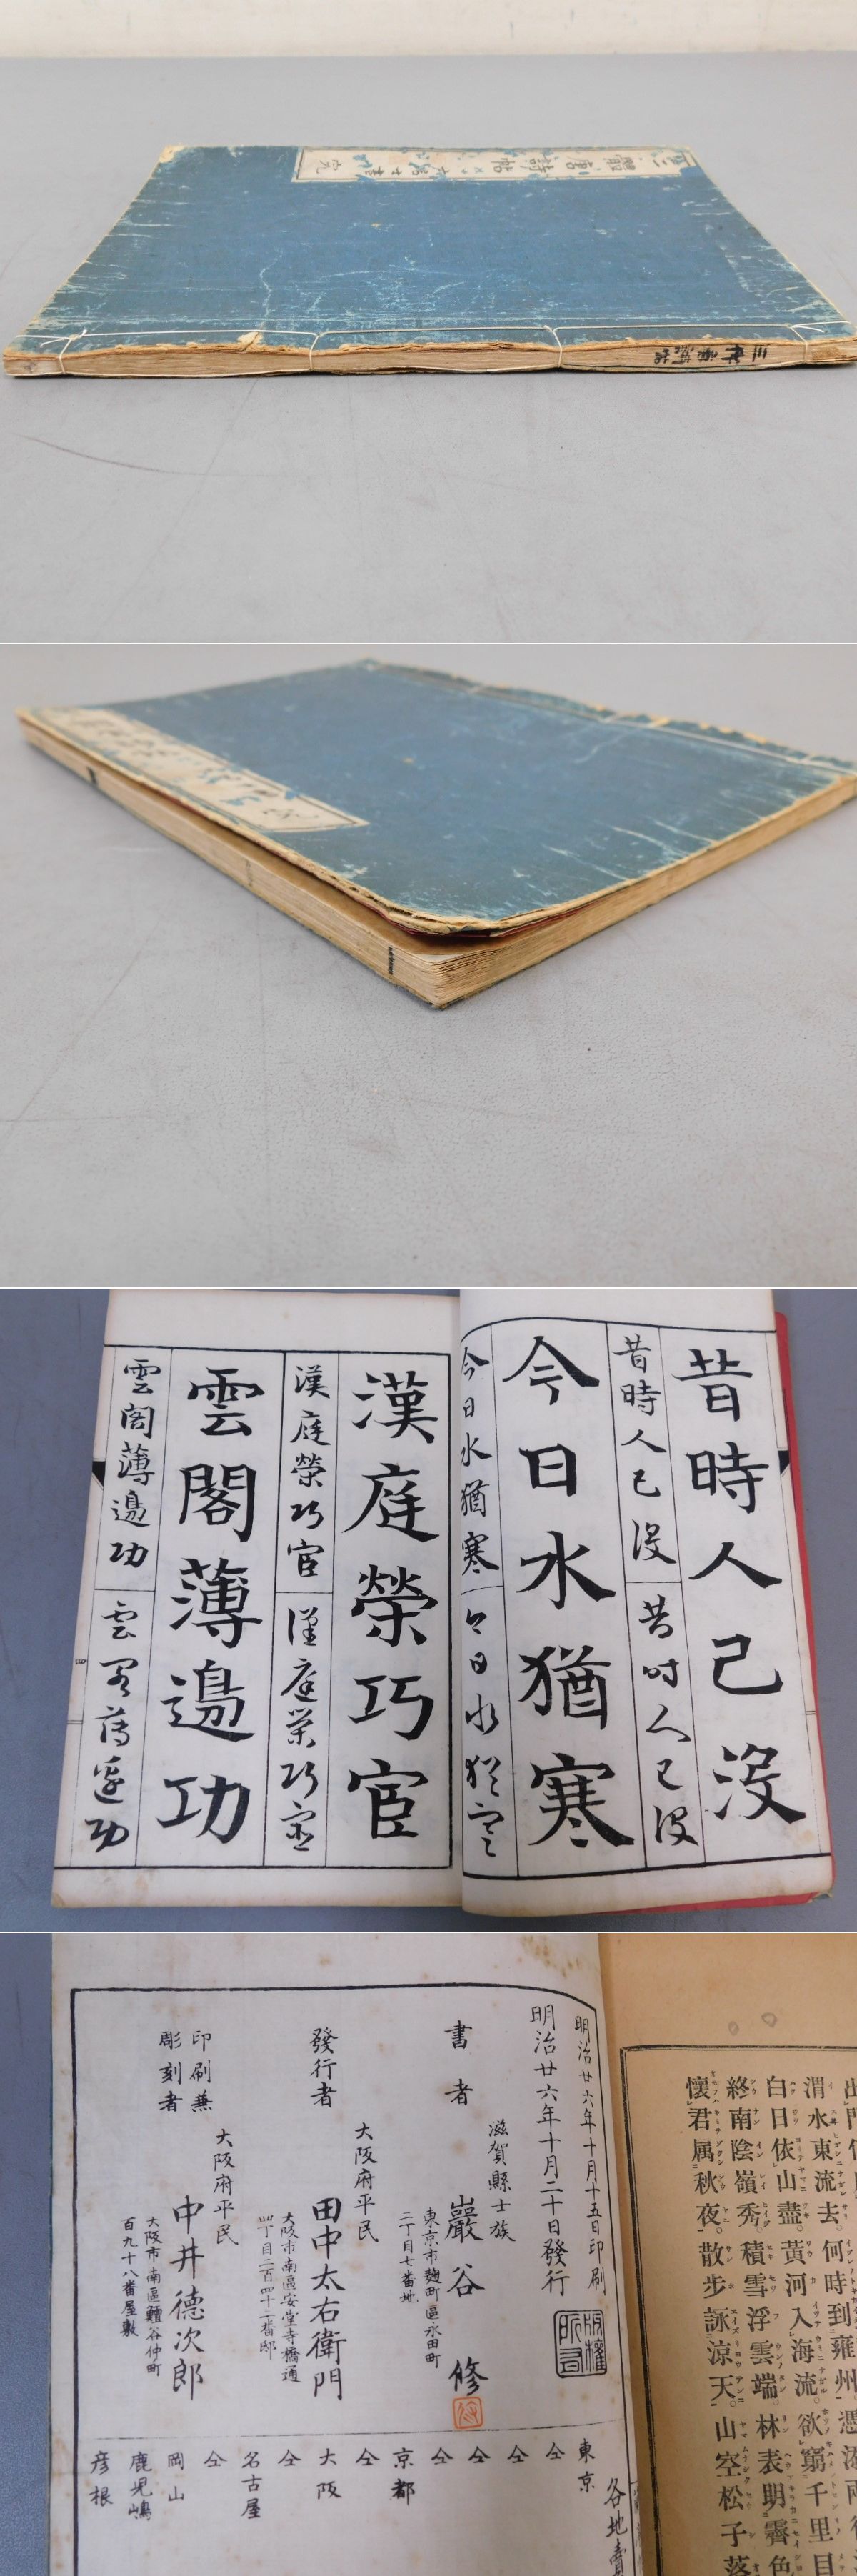 三體唐詩帖
完
三体唐詩帖
昔時人已沒
昔時人已沒
昔時人已沒
今日水猶寒
今日水猶寒
今日水猶寒
漢庭榮巧宦
漢庭榮巧宦
漢庭榮巧宦
雲閣薄邉功
雲閣薄邉功
雲閣薄邉功
四
明治廿六年十月十五日印刷
明治廿六年十月二十日發行
版權所有
滋賀縣士族
書者
巖谷修
東京市麹町區永田町
二丁目七番地
大阪府平民
發行者
田中太右衛門
大阪市南區安堂寺橋通
四丁目二百四十二番邸
大阪府平民
印刷兼
彫刻者
中井德次郎
大阪市南區鰻谷仲町
百九十八番屋敷
各地
東京
仝
仝
仝
仝
京都
仝
大阪
仝
名古屋
仝
岡山
鹿児嶋
彦根
何時到雍州
渭水東流去。
欲窮千里目
白日依山盡。黃河入海流。
終南陰嶺秀。積雪浮雲端。林表明霽色
懷君属秋夜。散步詠涼天。山空松子落